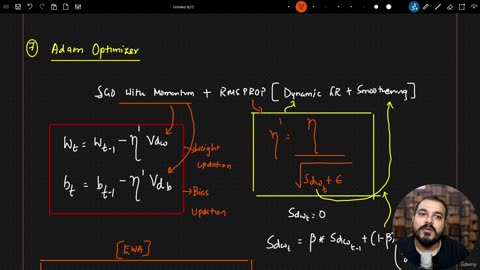 Untitled
⑦ Adam Optimizer
SGD With Momentum + RMSPROP [Dynamic LR + Smoothening]
Wt = Wt-1 - η' Vdw
Weight Updation
bt = bt-1 - η' Vdb
Bias Updation
η' = η / √(Sdwt + ε)
Sdwt = 0
Sdwt = β * Sdwt-1 + (1-β)
[EWA]
Udemy